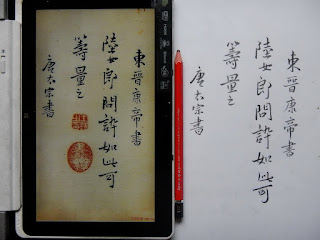 東晉康帝書
陸女郎問許如此可
籌量之
唐太宗書
東晉康帝書
陸女郎問許如此可
籌量之
唐太宗書